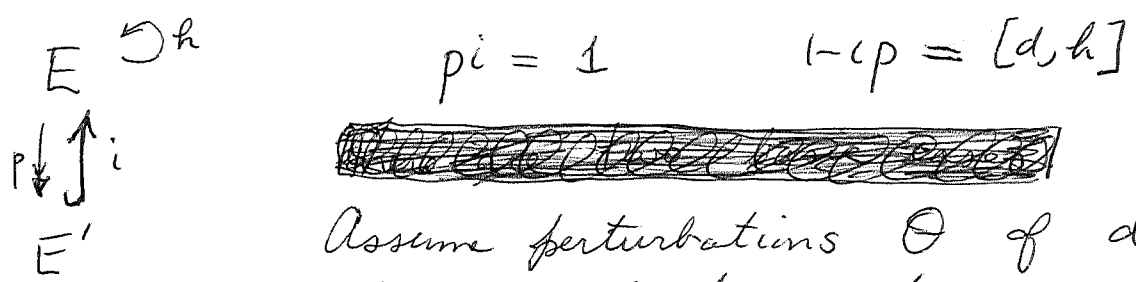 E h
pi = 1 1-ip = [d,h]
p i
E'
Assume perturbations θ of d